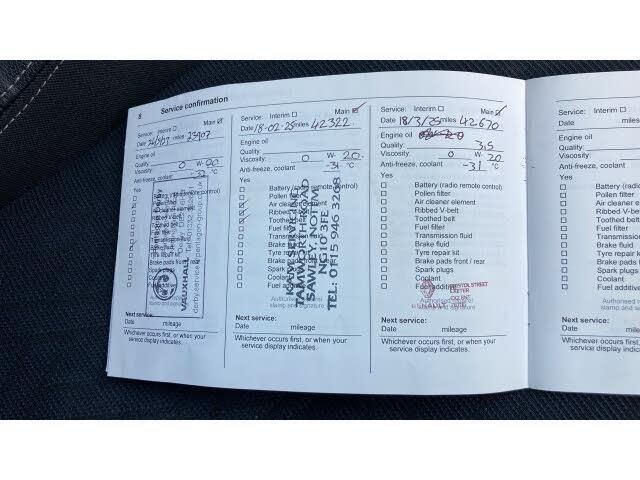 8 Service confirmation
Service: Interim ☐ Main ☑
Date miles 23907
Engine oil
Quality
Viscosity: 0 W- 20
Anti-freeze, coolant -32 °C
Yes
Pollen filter
Ribbed V-belt
Fuel filter
Brake fluid
Tyre repair kit
Brake pads front / rear
Spark plugs
Coolant
Fuel additive
VAUXHALL
Next service:
Date mileage
Whichever occurs first, or when your
service display indicates.
Service: Interim ☐ Main ☑
Date 18-02-25 miles 42322
Engine oil
Quality:
Viscosity: 0 W- 20
Anti-freeze, coolant -31 °C
Yes
Battery (radio remote control)
Pollen filter
Air cleaner element
Ribbed V-belt
Toothed belt
Fuel filter
Transmission fluid
Brake fluid
Tyre repair kit
Brake pads front / rear
Spark plugs
Coolant
Fuel additive
TAMWORTH ROAD
SAWLEY, NOTTM
NG10 3FE
TEL: 0115 946 3268
Authorised
stamp and signature
Next service:
Date mileage
Whichever occurs first, or when your
service display indicates.
Service: Interim ☐ Main ☑
Date 18/3/25 miles 42670
Engine oil
Quality 3,5
Viscosity: 0 W- 20
Anti-freeze, coolant -31 °C
Yes
Battery (radio remote control)
Pollen filter
Air cleaner element
Ribbed V-belt
Toothed belt
Fuel filter
Transmission fluid
Brake fluid
Tyre repair kit
Brake pads front / rear
Spark plugs
Coolant
Fuel additive
STREET
EXETER
stamp and signature
Next service:
Date mileage
Whichever occurs first, or when your
service display indicates.
Service: Interim ☐
Date miles
Engine oil
Quality:
Viscosity:
Anti-freeze, coolant
Yes
Battery (radio
Pollen filter
Air cleaner
Ribbed V-b
Toothed be
Fuel filter
Transmissi
Brake fluid
Tyre repair
Brake pads
Spark plug
Coolant
Fuel additi
Authoris
stamp and
Next service:
Date mi
Whichever occurs firs
service display indicat